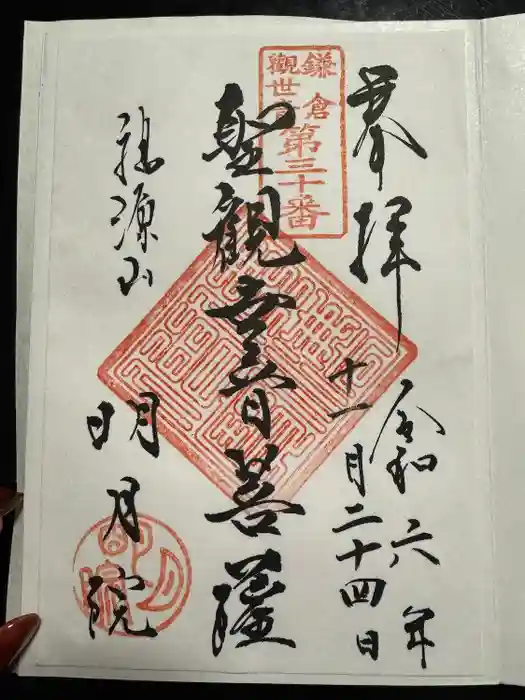 奉拝
令和六年
十一月二十四日
鎌倉
觀世音
第三十番
聖觀世音菩薩
福源山
明月院